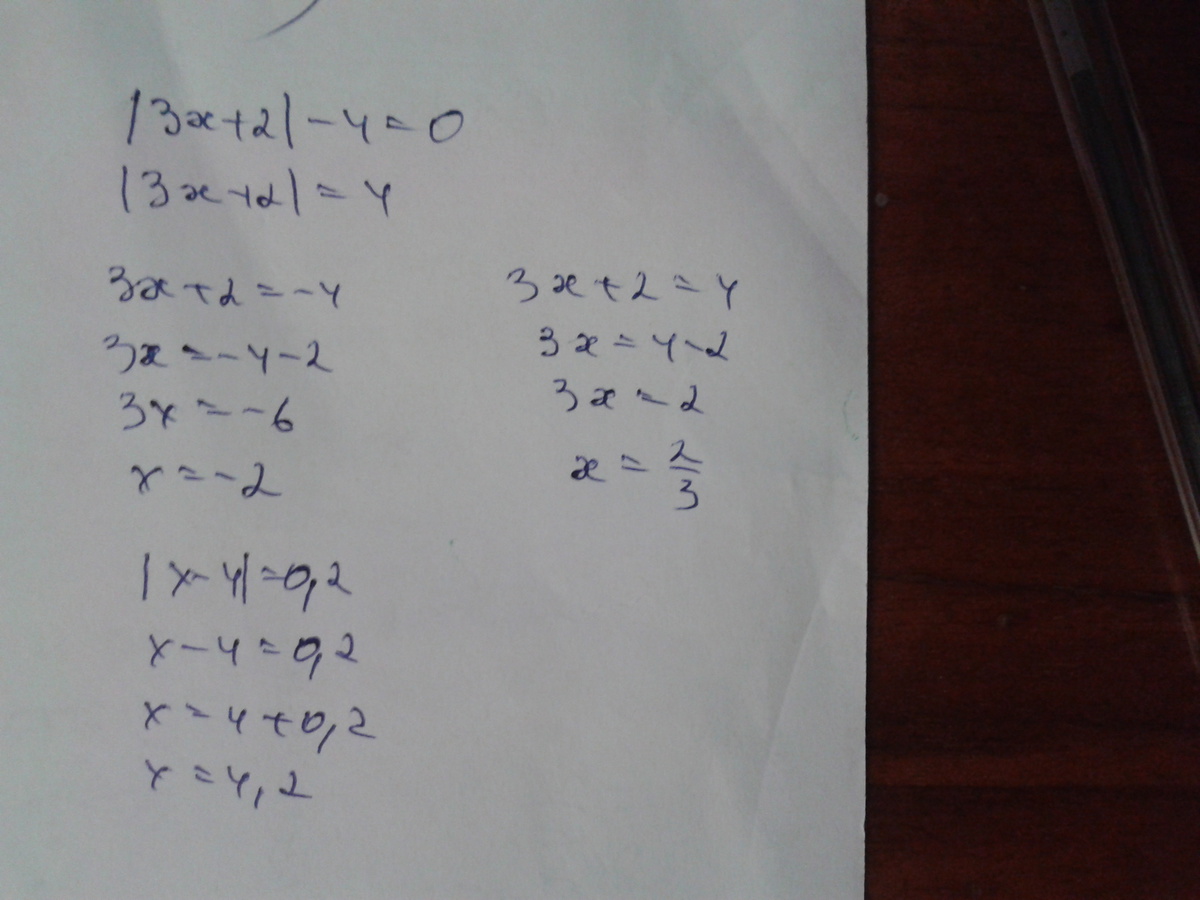 |3x+2|-4=0
|3x+2|=4
3x+2=-4
3x=-4-2
3x=-6
x=-2
3x+2=4
3x=4-2
3x=2
x=2/3
|x-4|=0,2
x-4=0,2
x=4+0,2
x=4,2